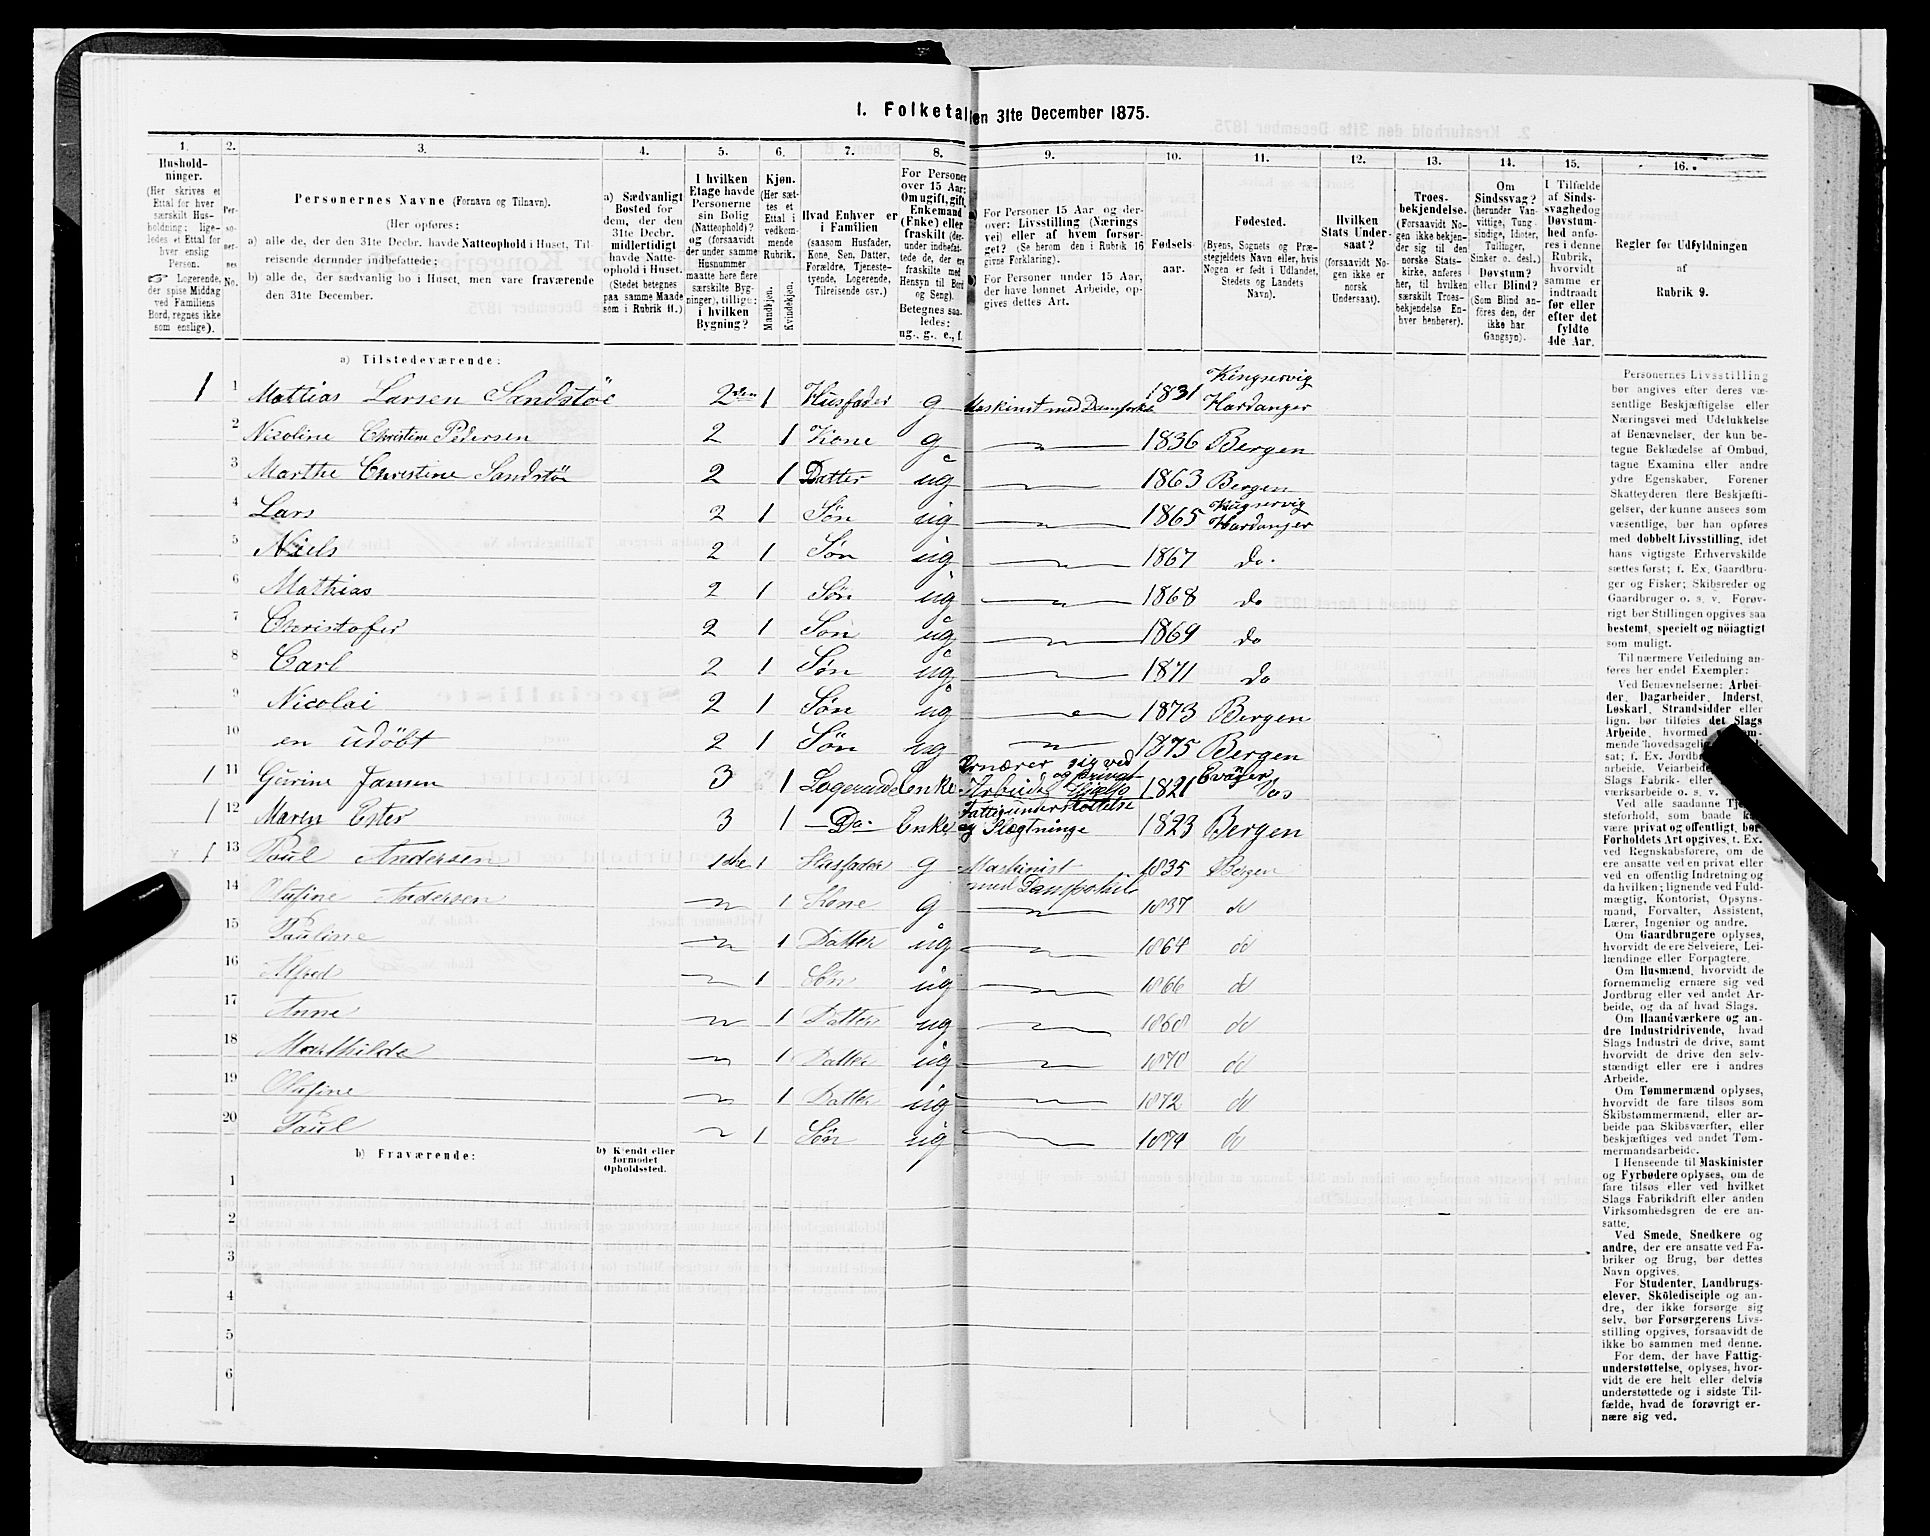 1. Folketal den 31te December 1875.
1. 2. 3. 4. 5. 6. 7. 8. 9. 10. 11. 12. 13. 14. 15. 16.
Hushold-
ninger.
(Her skrives et
Ettal for hver
særskilt Hus-
holdning; lige-
ledes et Ettal for
hver enslig
Person.
Logerende,
der spise Middag
ved Familiens
Bord, regnes ikke
som enslige).
Per-
so-
ner-
nes
No.
Personernes Navne (Fornavn og Tilnavn).
(Her opføres:
a) alle de, der den 31te Decbr. havde Natteophold i Huset, Til-
reisende derunder indbefattede;
b) alle de, der sædvanlig bo i Huset, men vare fraværende
den 31te December.
a) Sædvanligt
Bosted for
dem, der den
31te Decbr.
midlertidigt
havde Natte-
ophold i Huset.
(Stedet betegnes
paa samme Maade
som i Rubrik 11.)
I hvilken
Etage havde
Personerne
sin Bolig
(Natteophold)?
og (forsaavidt
der under samme
Husnummer
maatte høre flere
særskilte Byg-
ninger), tillige:
i hvilken
Bygning?
Kjøn.
(Her sæt-
tes et
Ettal i
vedkom-
mende
Rubrik.
Mandkjøn.
Kvindekjøn.
Hvad Enhver er
i Familien
(saasom Husfader,
Kone, Søn, Datter,
Forældre, Tjeneste-
tyende, Logerende,
Tilreisende osv.)
For Personer
over 15 Aar:
Om ugift, gift,
Enkemand
(Enke) eller
fraskilt (der-
under indbefat-
tede de, der ere
fraskilte med
Hensyn til Bord
og Seng).
Betegnes saa-
ledes:
ug., g., e., f.
a) For Personer 15 Aar og der-
over: Livsstilling (Nærings-
vei) eller af hvem forsør-
get? (Se herom den i Rubrik 16
givne Forklaring).
b) For Personer under 15 Aar,
der have lønnet Arbeide, op-
gives dettes Art.
Fødsels-
aar.
Fødested.
(Byens, Sognets og Præ-
stegjeldets Navn eller, hvis
Nogen er født i Udlandet,
Stedets og Landets
Navn).
Hvilken
Stats Under-
saat?
(forsaavidt No-
gen ikke er
norsk
Undersaat).
Troes-
bekjendelse.
(Forsaavidt No-
gen ikke bekjen-
der sig til den
norske Stats-
kirke, anføres
her, til hvilken
særskilt Troes-
bekjendelse En-
hver henhører).
Om
Sindssvag?
(herunder Van-
vittige, Tung-
sindige, Idioter,
Tullinger,
Sinker o. desl.)
Døvstum?
eller Blind?
(Som Blind an-
føres den, der
ikke har
Gangsyn).
I Tilfælde
af Sinds-
svaghed og
Døvstum-
hed anfø-
res i denne
Rubrik,
hvorvidt
samme er
indtraadt
før eller
efter det
fyldte
4de Aar.
Regler for Udfyldningen
af
Rubrik 9.
a) Tilstedeværende:
1 1 Mathias Larsen Sandstöe 2den 1 Husfader g Maskinist med Dampskib 1831 Kingservig Hardanger
2 Nicoline Christine Pedersen 2 1 Kone g 1836 Bergen
3 Marthe Christine Sandstöe 2 1 Datter ug 1863 Bergen
4 Lars 2 1 Søn ug 1865 Kingservig Hardanger
5 Niels 2 1 Søn ug 1867 do.
6 Mathias 2 1 Søn ug 1868 do
7 Christofer 2 1 Søn ug 1869 do
8 Carl 2 1 Søn ug 1871 do
9 Nicolai 2 1 Søn ug 1873 Bergen
10 en udöbt 2 1 Søn ug 1875 Bergen
1 11 Gurine Jansen 3 1 Logerende Enke Ernærer sig ved Arbeide og privat Hjælp 1821 Evanger Vos
1 12 Maren Ester 3 1 Do. Enke Fattigunderstöttelse og Slægtninge 1823 Bergen
1 13 Paul Andersen 1ste 1 Husfader g Maskinist med Dampskib 1835 Bergen
14 Olufine Andersen 1 Kone g 1837 do
15 Pauline 1 Datter ug 1864 do
16 Alfred 1 Søn ug 1866 do
17 Anne 1 Datter ug 1868 do
18 Marthilde 1 Datter ug 1870 do
19 Olufine 1 Datter ug 1872 do
20 Paul 1 Søn ug 1874 do
b) Fraværende:
b) Kjendt eller
formodet
Opholdssted.
1
2
3
4
5
6
Personernes Livsstilling
bør angives efter deres væ-
sentlige Beskjæftigelse eller
Næringsvei med Udelukkelse
af Benævnelser, der kun be-
tegne Beklædelse af Ombud,
tagne Examina eller andre
ydre Egenskaber. Forener
Skatteyderen flere Beskjæfti-
gelser, der kunne ansees som
væsentlige, bør han opføres
med dobbelt Livsstilling, idet
hans vigtigste Erhvervskilde
sættes først; f. Ex. Gaardbru-
ger og Fisker; Skibsreder og
Gaardbruger o. s. v. Forøv-
rigt bør Stillingen opgives saa
bestemt, specielt og nöiagtigt
som muligt.
Til nærmere Veiledning an-
føres her endel Exempler:
Ved Benævnelserne: Arbei-
der Dagarbeider Inderst,
Løskarl, Strandsidder eller
lign. bør tilføies det Slags
Arbeide, hvormed
mende hovedsagelig
sat; f. Ex. Jordb
arbeide, Veiarbeide
Slags Fabrik- eller
værksarbeide o. s. v.
Ved alle saadanne Tje
steforhold, som baade k
være privat og offentligt, bør
Forholdets Art opgives, t. Ex.
ved Regnskabsførere, om de
ere ansatte ved en privat eller
ved en offentlig Indretning og
da hvilken; lignende ved Fuld-
mægtig, Kontorist, Opsyns-
mand, Forvalter, Assistent,
Lærer, Ingeniør og andre.
Om Gaardbrugere oplyses,
hvorvidt de ere Selveiere, Lei-
lændinge eller Forpagtere.
Om Husmænd, hvorvidt de
fornemmelig ernære sig ved
Jordbrug eller ved andet Ar-
beide, og da af hvad Slags.
Om Haandværkere og an-
dre Industridrivende, hvad
Slags Industri de drive, samt
hvorvidt de drive den selv-
stændigt eller ere i andres
Arbeide.
Om Tømmermænd oplyses,
hvorvidt de fare tilsøs som
Skibstømmermænd, eller ar-
beide paa Skibsværfter, eller
beskjæftiges ved andet Tøm-
mermandsarbeide.
I Henseende til Maskinister
og Fyrbødere oplyses, om de
fare tilsøs eller ved hvilket
Slags Fabrikdrift eller anden
Virksomhedsgren de ere an-
satte.
Ved Smede, Snedkere og
andre, der ere ansatte ved Fa-
briker og Brug, bør dettes
Navn opgives.
For Studenter, Landbrugs-
elever, Skölediscipler og an-
dre, der ikke forsørge sig
selv, bør Forsørgerens Livs-
stilling opgives, forsaavidt de
ikke bo sammen med denne.
For dem, der have Fattig-
understøttelse, oplyses, hvor-
vidt de ere helt eller delvis
understøttede og i sidste Til-
fælde, hvad de forøvrigt er-
nære sig ved.